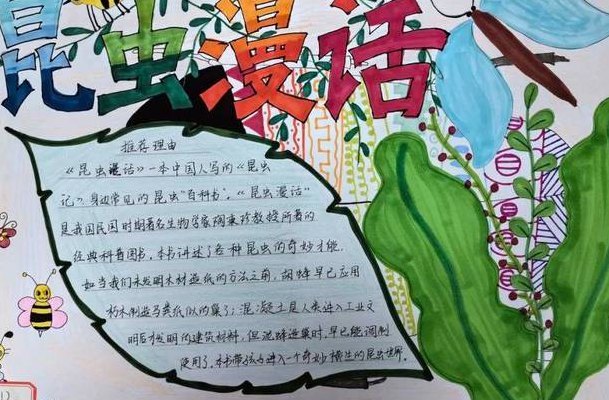 昆虫漫话
推荐理由
《昆虫漫话》一本中国人写的《昆虫
记》身边常见的昆虫"百科书"。《昆虫漫话》
是我国民国时期著名生物学家陶秉珍教授所著的
经典科普图书。本书讲述了各种昆虫的奇妙才能.
如当我们未发明木材造纸的方法之前，胡蜂早已应用
朽木制造了类纸似的巢了；混凝土是人类进入工业文
明后发明的建筑材料，但泥蜂造巢时，早已能调制
使用了。本书带领你进入一个奇妙横生的昆虫世界。